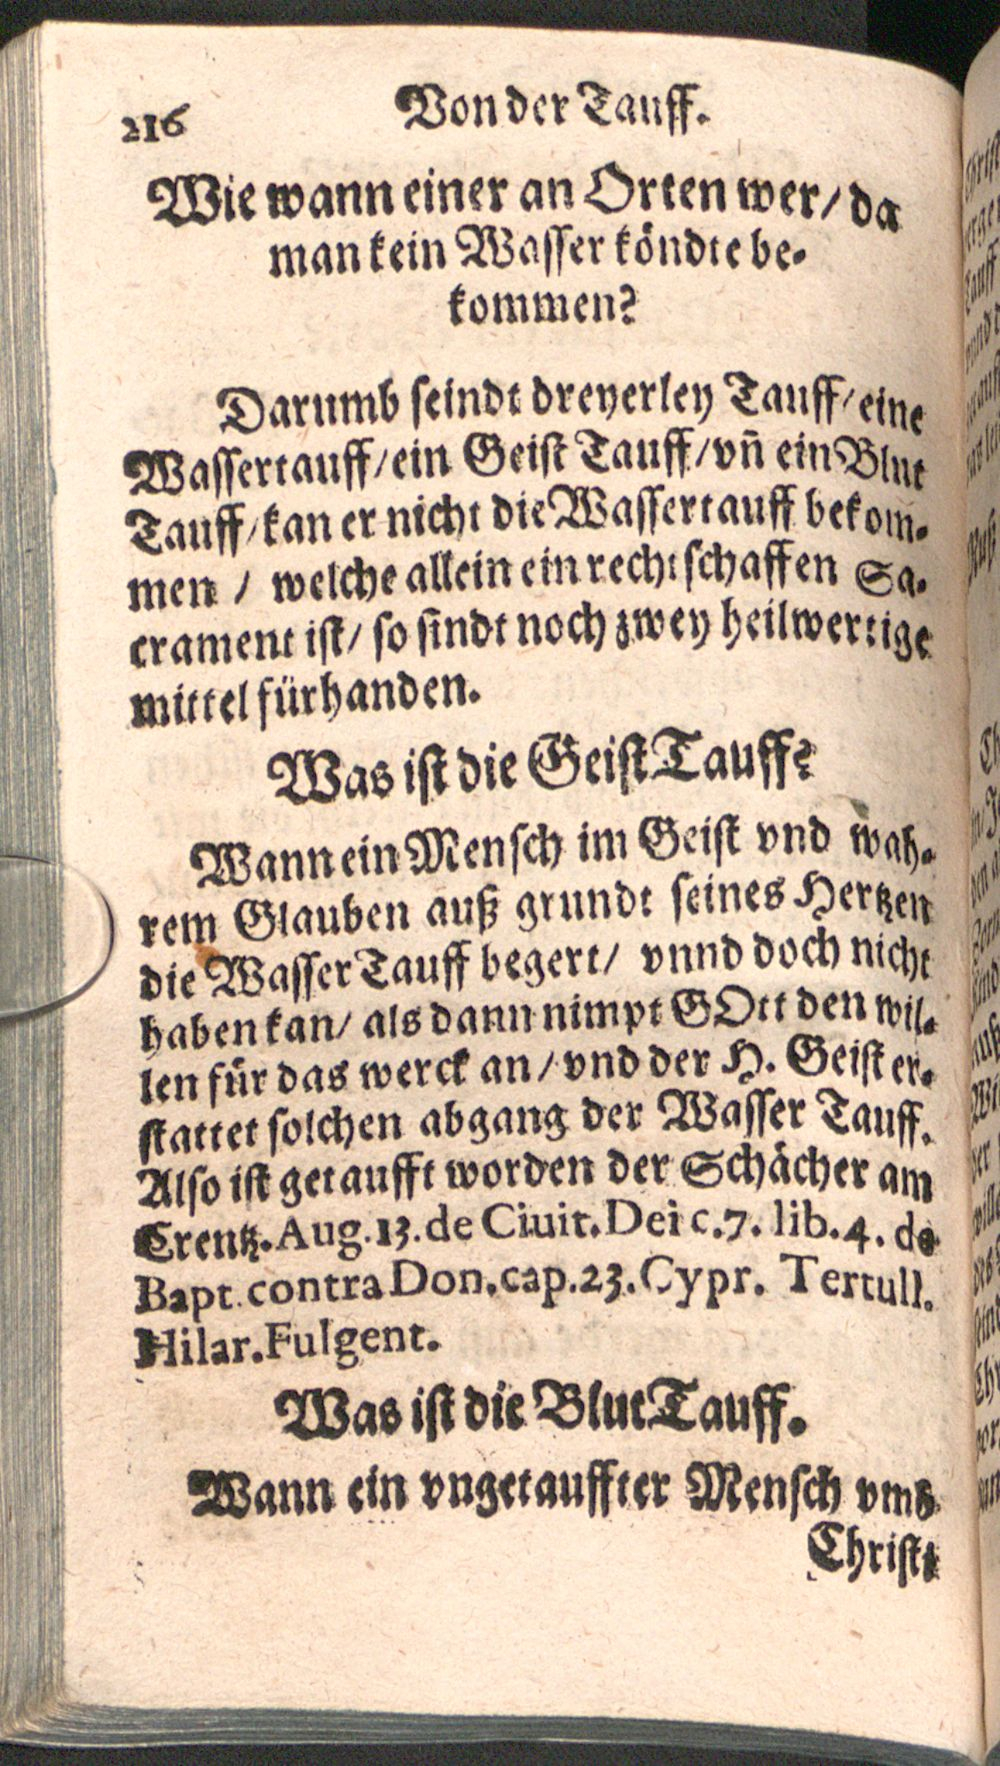 216
Von der Tauff.
Wie wann einer an Orten wer/ da
man kein Wasser köndte be-
kommen?
Darumb seindt dreyerley Tauff/ eine
Wassertauff/ ein Geist Tauff/ vñ ein Blut
Tauff/ kan er nicht die Wassertauff bekom-
men / welche allein ein rechtschaffen Sa-
crament ist/ so sindt noch zwey heilwertige
mittel fürhanden.
Was ist die Geist Tauff?
Wann ein Mensch im Geist vnd wah-
rem Glauben auß grundt seines Hertzen
die Wasser Tauff begert/ vnnd doch nicht
haben kan/ als dann nimpt GOtt den wil-
len für das werck an/ vnd der H. Geist er-
stattet solchen abgang der Wasser Tauff.
Also ist getaufft worden der Schächer am
Crentz. Aug. 13. de Ciuit. Dei c. 7. lib. 4. de
Bapt. contra Don. cap. 23. Cypr. Tertull.
Hilar. Fulgent.
Was ist die Blut Tauff.
Wann ein vngetauffter Mensch vmb
Christi